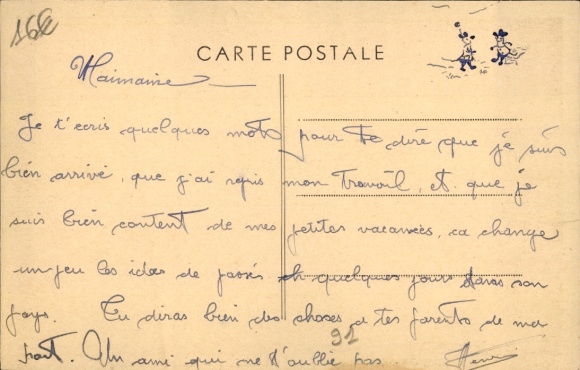 16€
CARTE POSTALE
Maimaine
Je t'écris quelques mots pour te dire que je suis
bien arrivé, que j'ai repris mon travail, et que je
suis bien content de mes petites vacances, ca change
un peu les idées de passés quelques jours dans son
pays. Tu diras bien des choses a tes parents de ma
part. Un ami qui ne t'oublie pas Henri
92